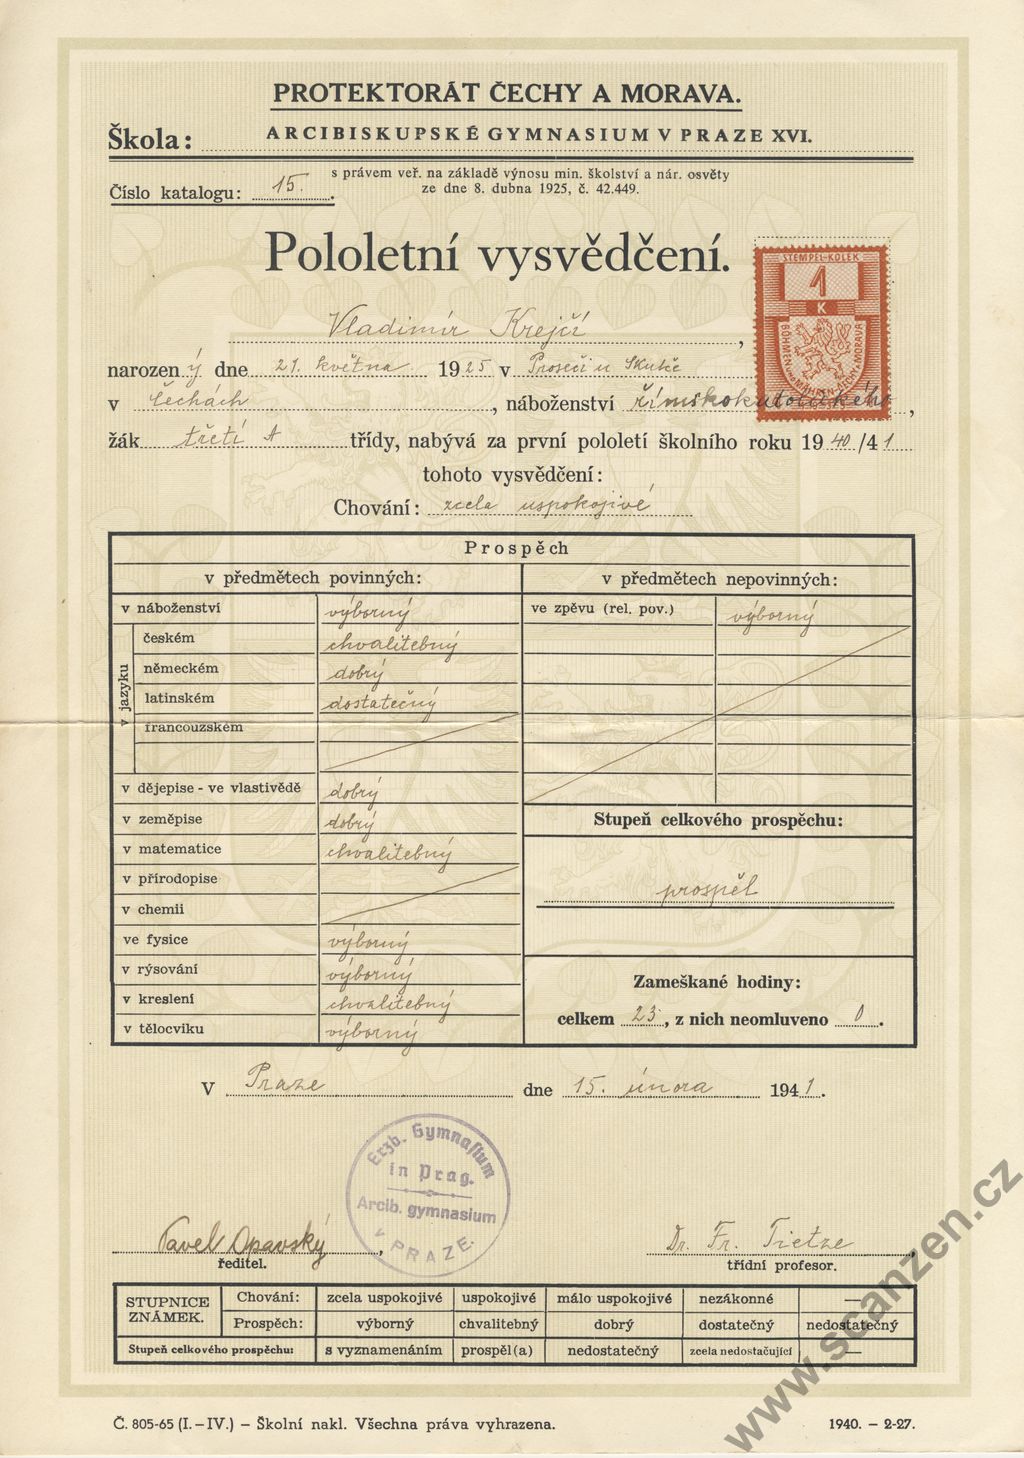 PROTEKTORÁT ČECHY A MORAVA.
Škola: ARCIBISKUPSKÉ GYMNASIUM V PRAZE XVI.
s právem veř. na základě výnosu min. školství a nár. osvěty
Číslo katalogu: 15.
ze dne 8. dubna 1925, č. 42.449.
Pololetní vysvědčení.
STEMPEL-KOLEK
1
K
BÖHMEN und MÄHREN-ČECHY a MORAVA
Vladimír Krejčí,
narozený dne 21. května 1925 v Proseči u Skutče
v Čechách, náboženství římskokatolického,
žák třetí A třídy, nabývá za první pololetí školního roku 1940/41
tohoto vysvědčení:
Chování: zcela uspokojivé
Prospěch
v předmětech povinných: v předmětech nepovinných:
v náboženství výborný ve zpěvu (rel. pov.) výborný
v jazyku
českém chvalitebný
německém dobrý
latinském dostatečný
francouzském
v dějepise - ve vlastivědě dobrý
v zeměpise dobrý Stupeň celkového prospěchu:
v matematice chvalitebný
v přírodopise prospěl
v chemii
ve fysice výborný
v rýsování výborný Zameškané hodiny:
v kreslení chvalitebný celkem 23, z nich neomluveno 0.
v tělocviku výborný
V Praze dne 15. února 1941.
Erzb. Gymnasium
in Prag.
Arcib. gymnasium
v PRAZE.
Pavel Opavský, Dr. Fr. Tietze
ředitel. třídní profesor.
STUPNICE ZNÁMEK.
Chování: zcela uspokojivé uspokojivé málo uspokojivé nezákonné —
Prospěch: výborný chvalitebný dobrý dostatečný nedostatečný
Stupeň celkového prospěchu: s vyznamenáním prospěl(a) nedostatečný zcela nedostačující —
Č. 805-65 (I.-IV.) – Školní nakl. Všechna práva vyhrazena. 1940. – 2-27.
www.scanzen.cz